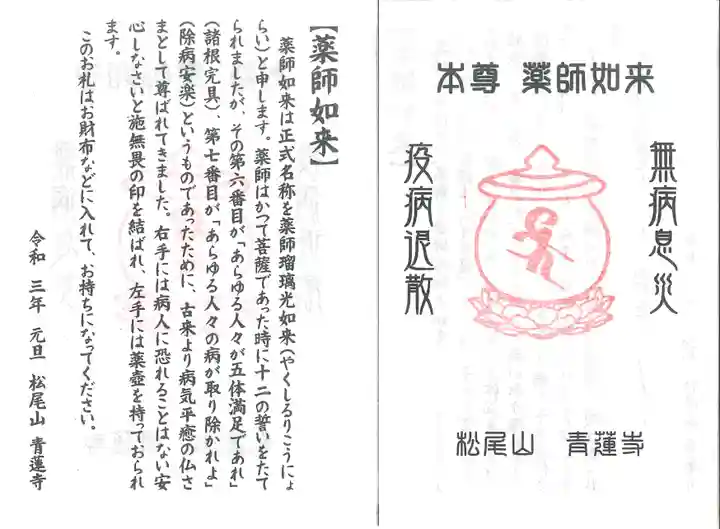 本尊 薬師如来
無病息災
疫病退散
松尾山 青蓮寺
【薬師如来】
薬師如来は正式名称を薬師瑠璃光如来(やくしるりこうにょ
らい)と申します。薬師はかつて菩薩であった時に十二の誓いをたて
られましたが、その第六番目が「あらゆる人々が五体満足であれ」
(諸根完具)、第七番目が「あらゆる人々の病が取り除かれよ」
(除病安楽)というものであったために、古来より病気平癒の仏さ
まとして尊ばれてきました。右手には病人に恐れることはない安
心しなさいと施無畏の印を結ばれ、左手には薬壺を持っておられ
ます。
このお札はお財布などに入れて、お持ちになってください。
令和 三年 元旦 松尾山 青蓮寺